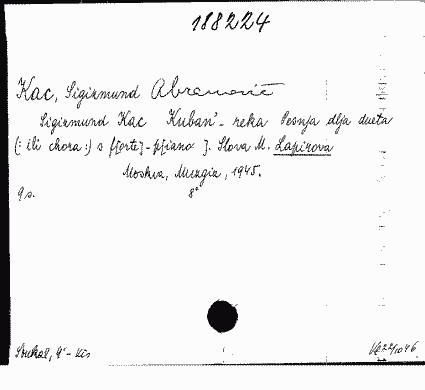 188224
Kac, Sigizmund Abramovič
Sigizmund Kac Kuban'- reka Pesnja dlja dueta
(: ili chora :) s f[orte]-p[iano]. Slova M. Lapirova
Moskva, Muzgiz, 1945.
9 s. 8°
Soukal, 4° - Kis